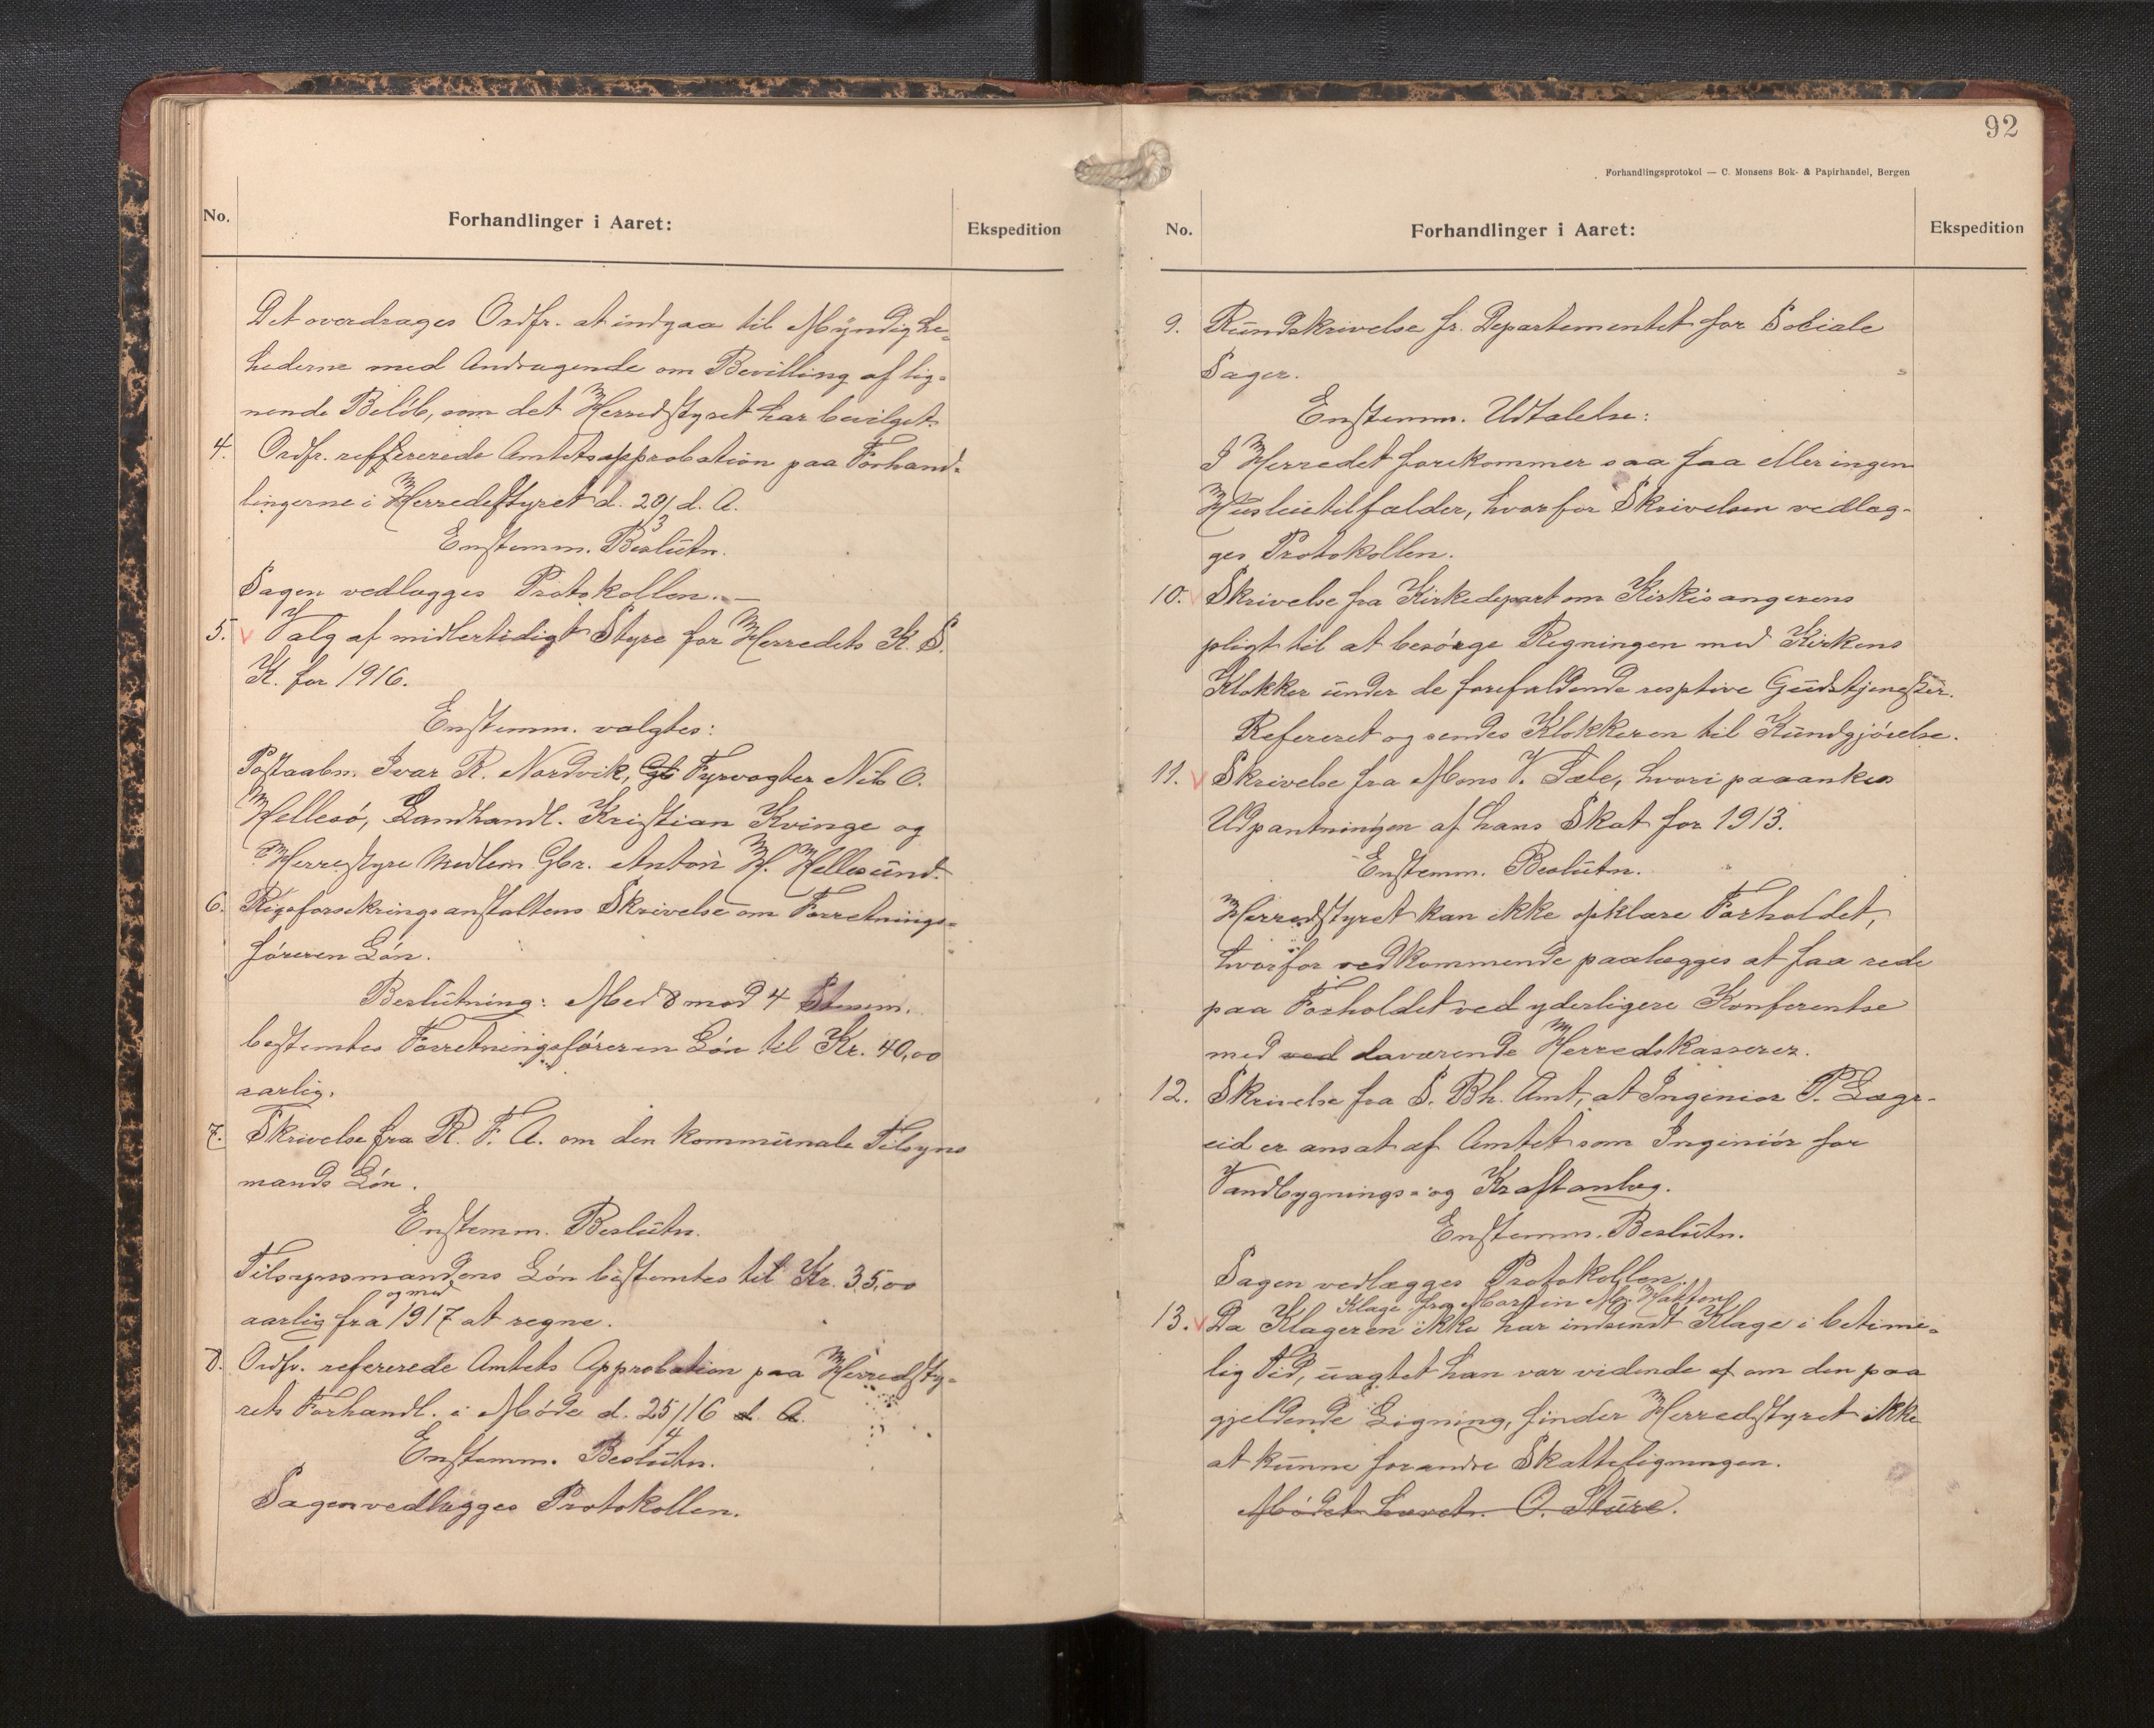 No.
Forhandlinger i Aaret:
Ekspedition
Det overdrages Ordfr. at indgaa til Myndighe-
hederne med Andragende om Bevilling af lig-
nende Beløb, som det Herredstyret har bevilget.
4. Ordfr. reffererede Amtetsapprobation paa Forhand-
lingerne i Herredestyret d. 20/3 d. A.
Enstemm. Beslutn.
Sagen vedlægges Protokollen. —
5. v Valg af midlertidigt Styre for Herredets K. S.
K. for 1916.
Enstemm. valgtes:
Postaabn. Ivar R. Nordvik, Gb Fyrvogter Nils O.
Hellesö, Landhandl. Kristian Kvinge og
Herrestyre Medlem Gbr. Anton H. Hellesund.
6. Rigsforsekringsanstaltens Skrivelse om Forretnings-
føreren Løn.
Beslutning: Med 8 mod 4 Stemm.
bestemtes Forretningsføreren Løn til Kr. 40,00
aarlig.
7. Skrivelse fra R. F. A. om den kommunale Tilsyns
mands Løn.
Enstemm. Beslutn.
Tilsynsmandens Løn bestemtes til Kr. 35,00
og med
aarlig fra 1917 at regne.
8. Ordfr. refererede Amtets Approbation paa Herredsty-
rets Forhandl. i Møde d. 25/4 16 d. A.
Enstemm. Beslutn.
Sagen vedlægges Protokollen.
92
Forhandlingsprotokol — C. Monsens Bok- & Papirhandel, Bergen
No.
Forhandlinger i Aaret:
Ekspedition
9. Rundskrivelse fr. Departementet for Sociale
Sager.
Enstemm. Udtalelse:
I Herredet forekommer saa faa eller ingen
Husleietilfælder, hvorfor Skrivelsen vedlæg-
ges Protokollen.
10. v Skrivelse fra Kirkedepart om Kirkesangerens
pligt til at besørge Ringningen med Kirkens
Klokker under de forefaldende resptive Gudstjenester.
Refereret og sendes Klokkeren til Kundgjørelse.
11. v Skrivelse fra Mons V. Tæle, hvori paaankes
Udpantningen af hans Skat for 1913.
Enstemm. Beslutn.
Herredstyret kan ikke opklare Forholdet,
hvorfor vedkommende paalægges at faa rede
paa Forholdet ved yderligere Konferentse
med ved daværende Herredskasserer.
12. Skrivelse fra S. Bh. Amt, at Ingeniør P. Lægr-
eid er ansat af Amtet som Ingeniør for
Vandbygnings- og Kraftanlæg.
Enstemm. Beslutn.
Sagen vedlægges Protokollen.
Klage fra Martin M.
13. v Da Klageren ikke har indsendt Klage i betime-
lig Tid, uagtet han var vidende af om den paa
gjeldende Ligning, finder Herredstyret ikke
at kunne forandre Skatteligningen.
Mødet hævet. O. Sture.